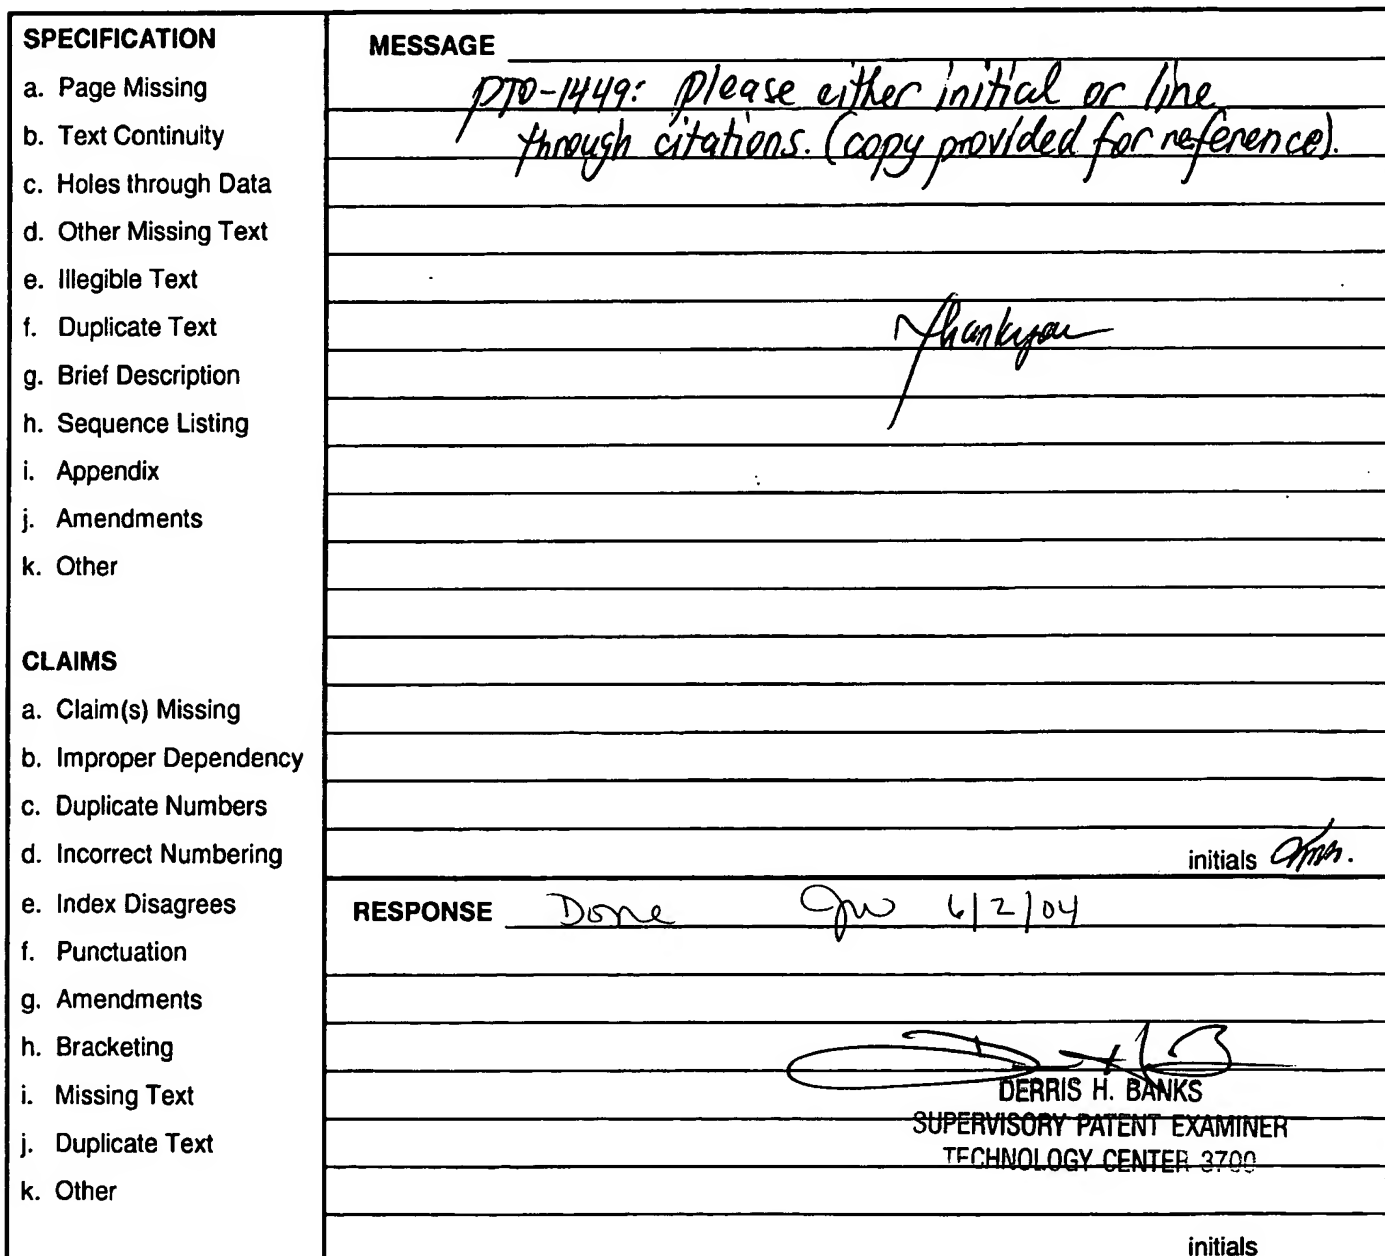 SPECIFICATION
a. Page Missing
b. Text Continuity
c. Holes through Data
d. Other Missing Text
e. Illegible Text
f. Duplicate Text
g. Brief Description
h. Sequence Listing
i. Appendix
j. Amendments
k. Other
CLAIMS
a. Claim(s) Missing
b. Improper Dependency
c. Duplicate Numbers
d. Incorrect Numbering
e. Index Disagrees
f. Punctuation
g. Amendments
h. Bracketing
i. Missing Text
j. Duplicate Text
k. Other
MESSAGE
PTO-1449: please either initial or line
through citations. (copy provided for reference).
Thankyou
initials
RESPONSE Done JW 6/2/04
DERRIS H. BANKS
SUPERVISORY PATENT EXAMINER
TECHNOLOGY CENTER 3700
initials